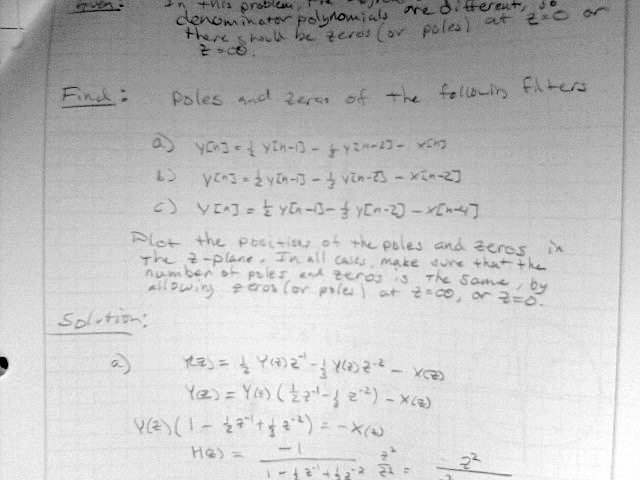 Given: In this problem, the are different, so
denominator polynomials at z=0 or
there should be zeros (or poles)
z=∞.
Find: Poles and zeros of the following filters
a) y[n] = ½ y[n-1] - ⅓ y[n-2] - x[n]
b) y[n] = ½ y[n-1] - ⅓ y[n-2] - x[n-2]
c) y[n] = ½ y[n-1] - ⅓ y[n-2] - x[n-4]
Plot the positions of the poles and zeros in
the z-plane. In all cases, make sure that the
number of poles and zeros is the same, by
allowing zeros (or poles) at z=∞, or z=0.
Solution:
a) Y(z) = ½ Y(z)z⁻¹ - ⅓ Y(z)z⁻² - X(z)
Y(z) = Y(z) (½z⁻¹ - ⅓z⁻²) - X(z)
Y(z)(1 - ½z⁻¹ + ⅓z⁻²) = -X(z)
H(z) = -1 / (1 - ½z⁻¹ + ⅓z⁻²) z²/z² = z²